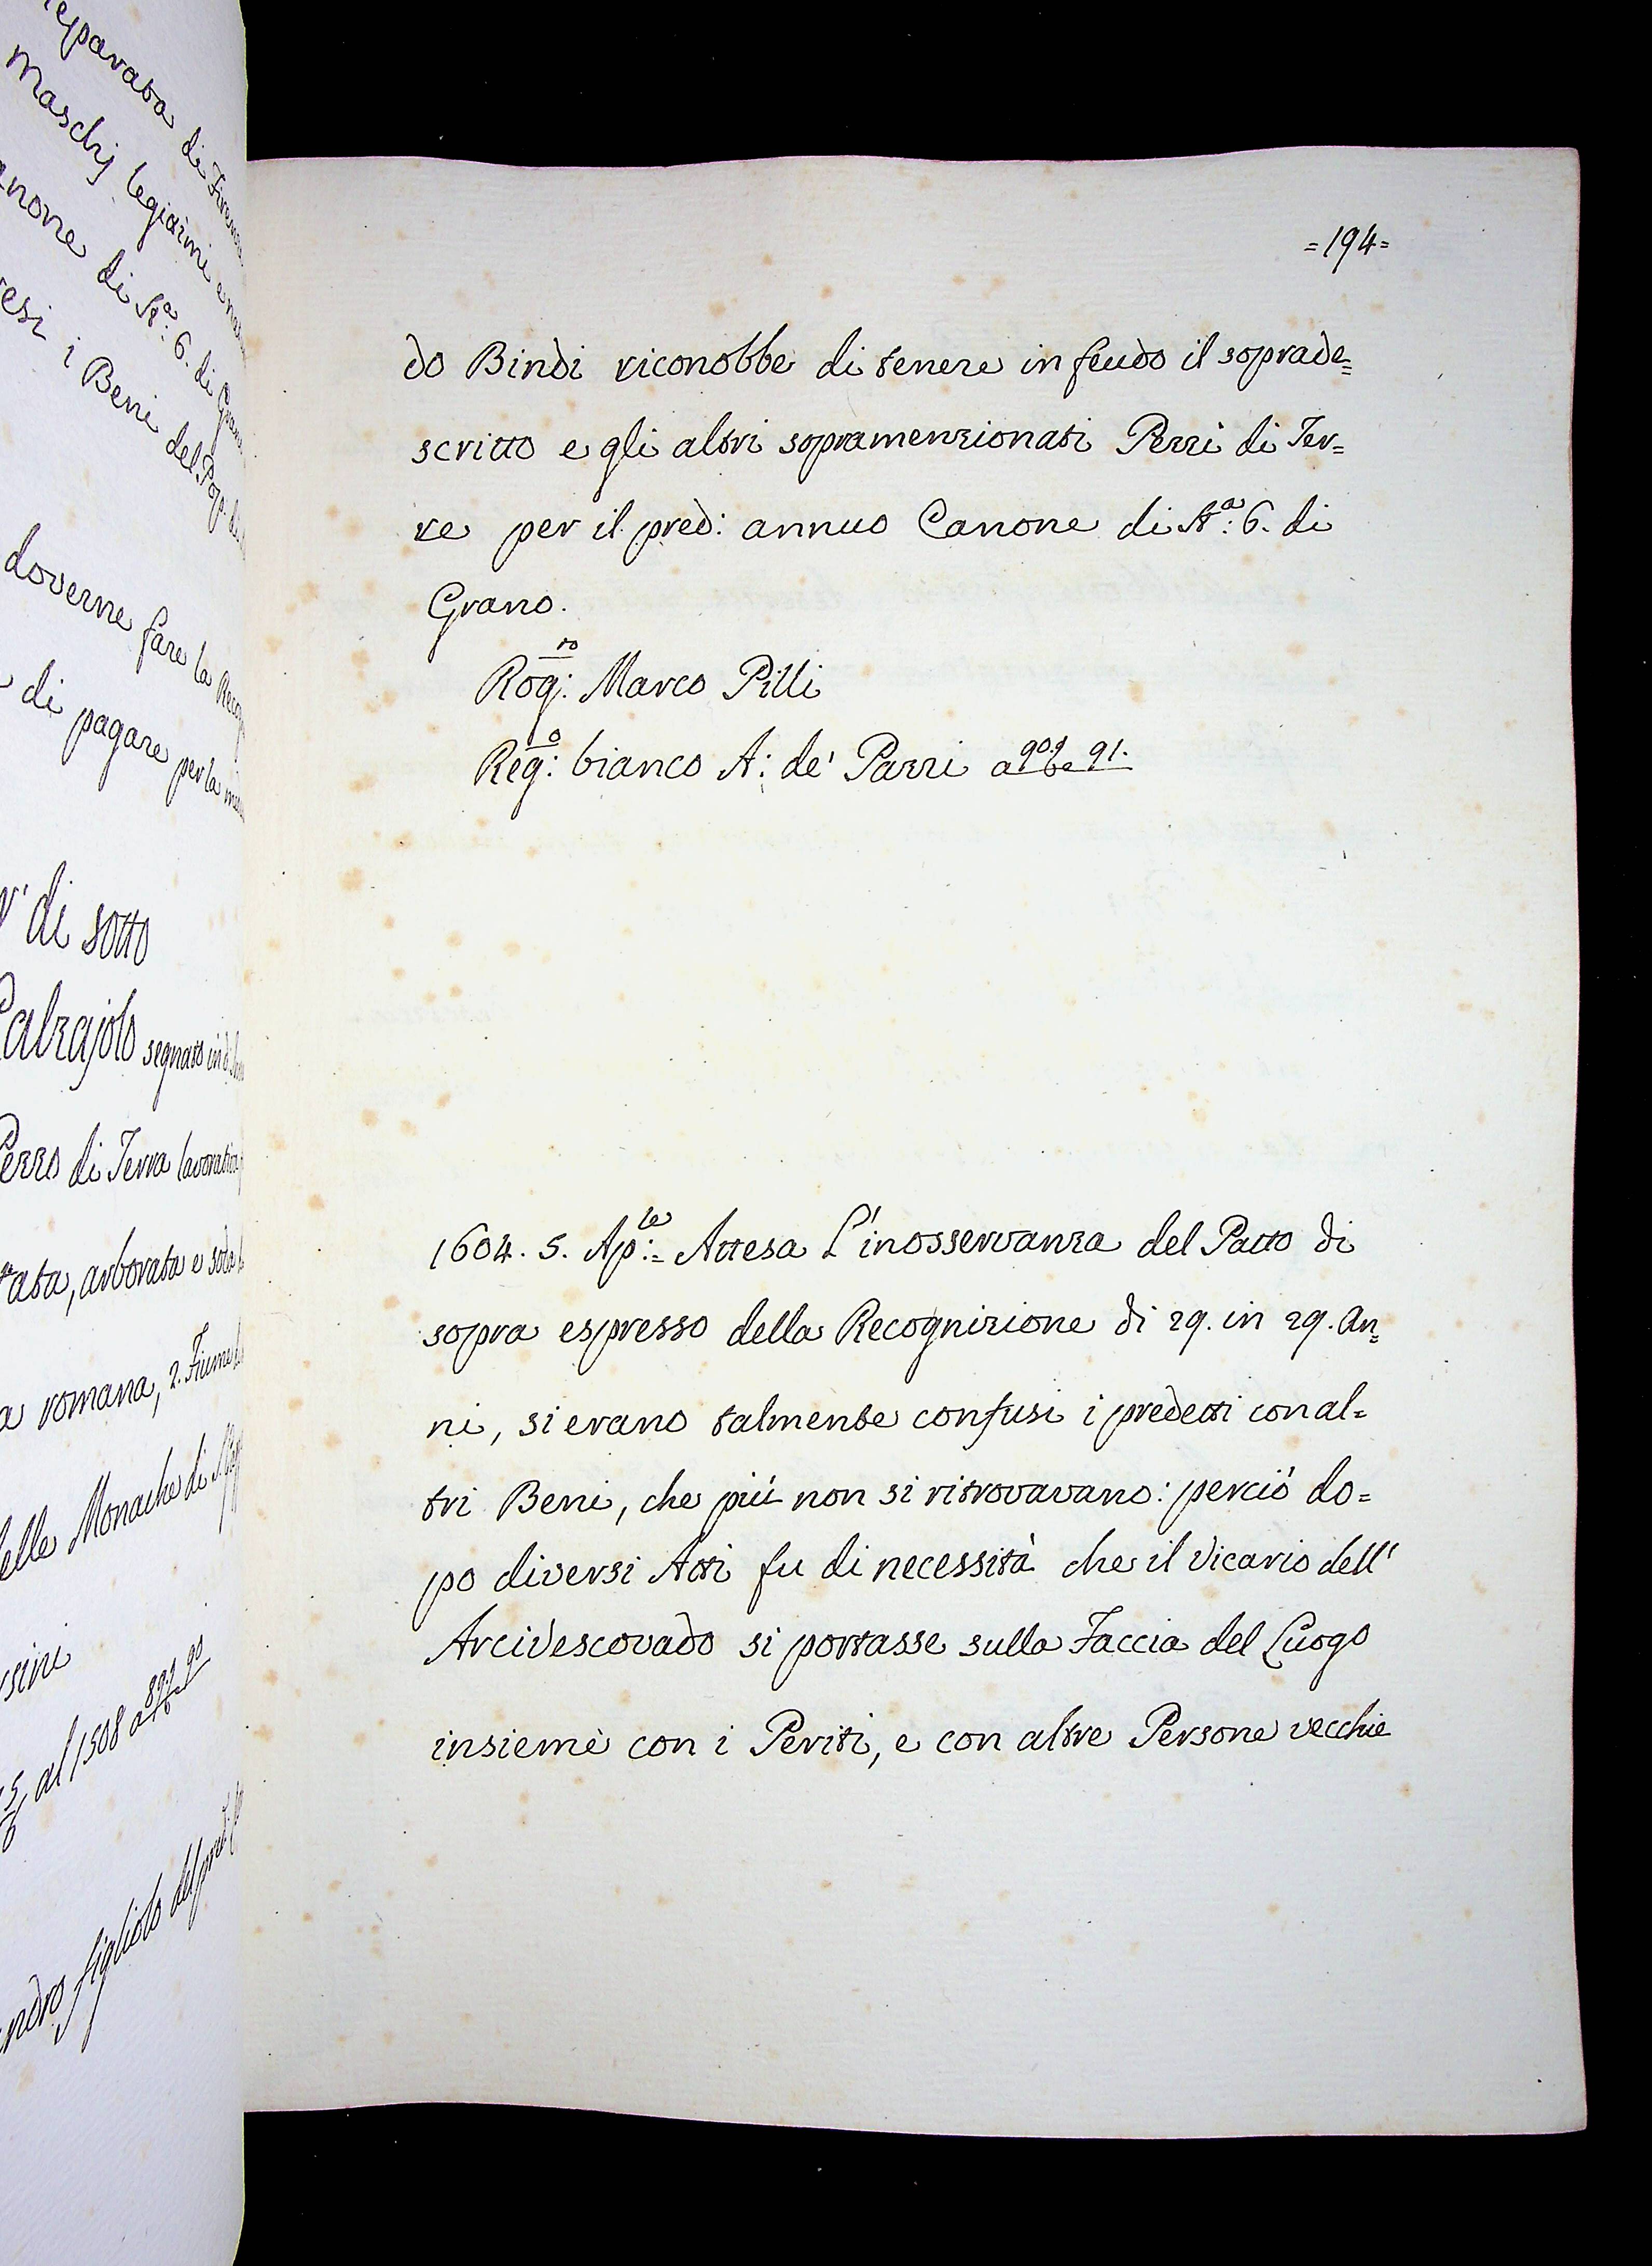 reparata di Firenze
Maschj legitimi e na
anone di Stª: 6. di Grano
resi i Beni del Pop. di
doverne fare la Recog
di pagare per la
di sotto
Calzajolo segnato in di
Pezzo di Terra lavorativa
tata, arborata e soda
a romana, 2. Fiume
delle Monache di S.
ssini
al 1508 a 89 t.º 90
ndro figliolo del pred:
=194=
do Bindi riconobbe di tenere in feudo il soprade=
scritto e gli altri sopramenzionati Pezzi di Ter=
re per il pred: annuo Canone di Stª: 6. di
Grano.
Rog:ʳᵒ Marco Pilli
Reg:º bianco A: de' Pazzi a 90. t.º e 91.
1604. 5. Ap:ˡᵉ= Attesa L'inosservanza del Patto di
sopra espresso della Recognizione di 29. in 29. An=
ni, si erano talmente confusi i predetti con al=
tri Beni, che più non si ritrovavano: perciò do=
po diversi Atti fu di necessità che il Vicario dell'
Arcivescovado si portasse sulla Faccia del Luogo
insieme con i Periti, e con altre Persone vecchie